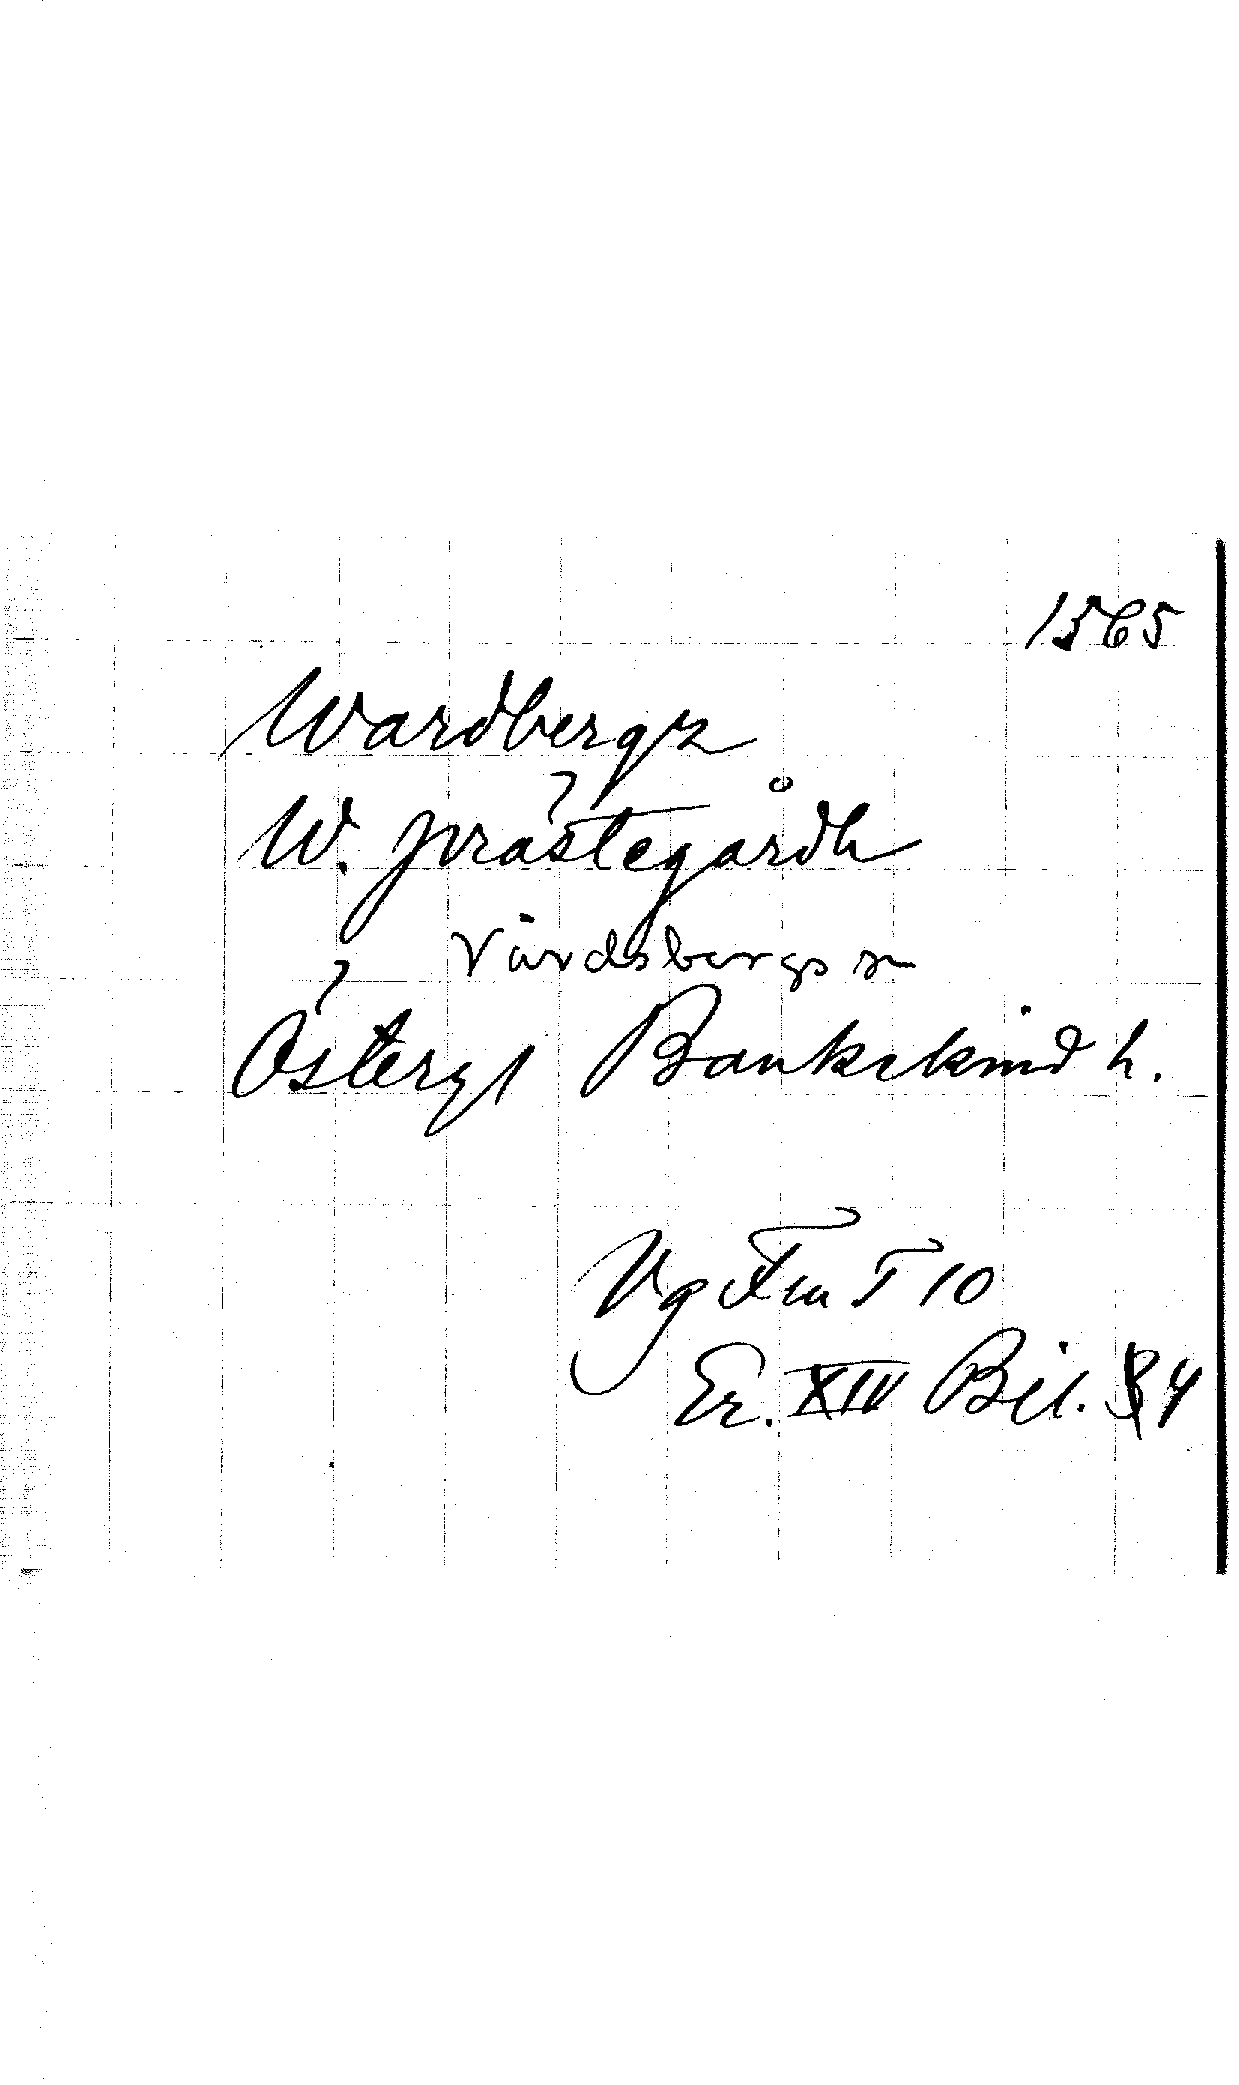 1565
Wardbergz
W. prästegårdh
Vårdsbergs sn
Östergl Bankekind h.
Vg Fru T 10
Er. XIV Bil. 4